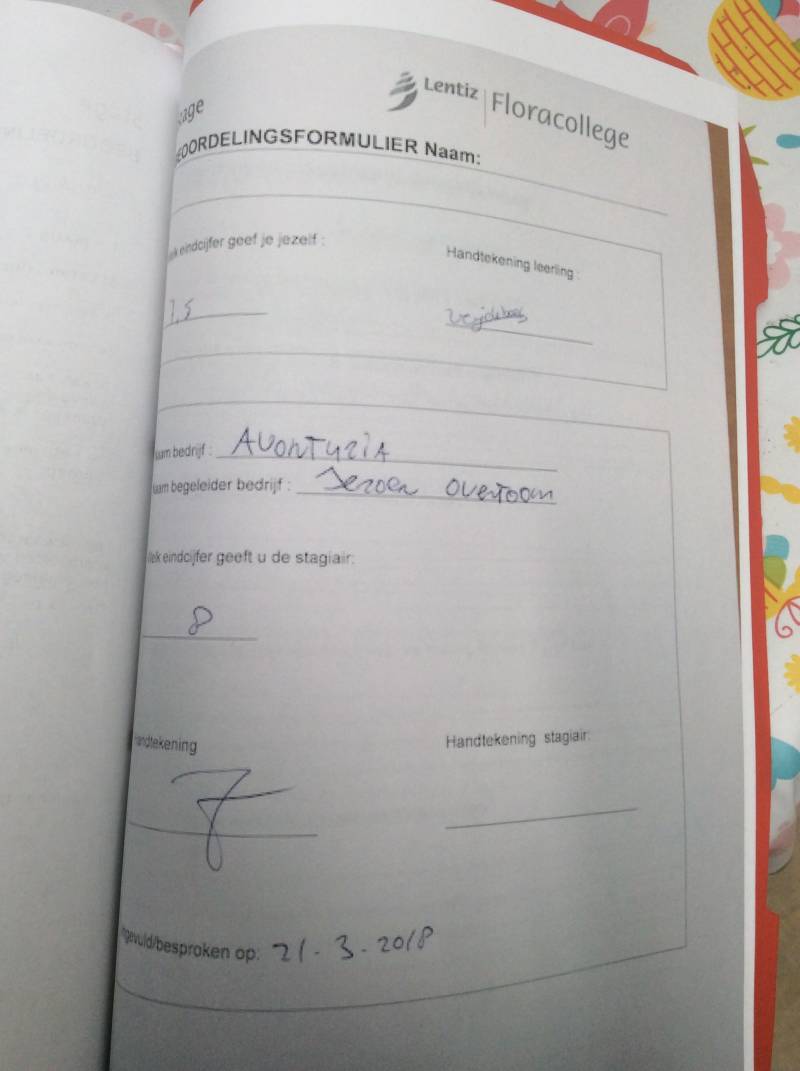 Lentiz | Floracollege
age
OORDELINGSFORMULIER Naam:
eindcijfer geef je jezelf :
Handtekening leerling :
7,5
am bedrijf : AVONTURIA
aam begeleider bedrijf : Jeroen Overtoom
lek eindcijfer geeft u de stagiair:
8
andtekening
Handtekening stagiair:
ngevuld/besproken op: 21-3-2018